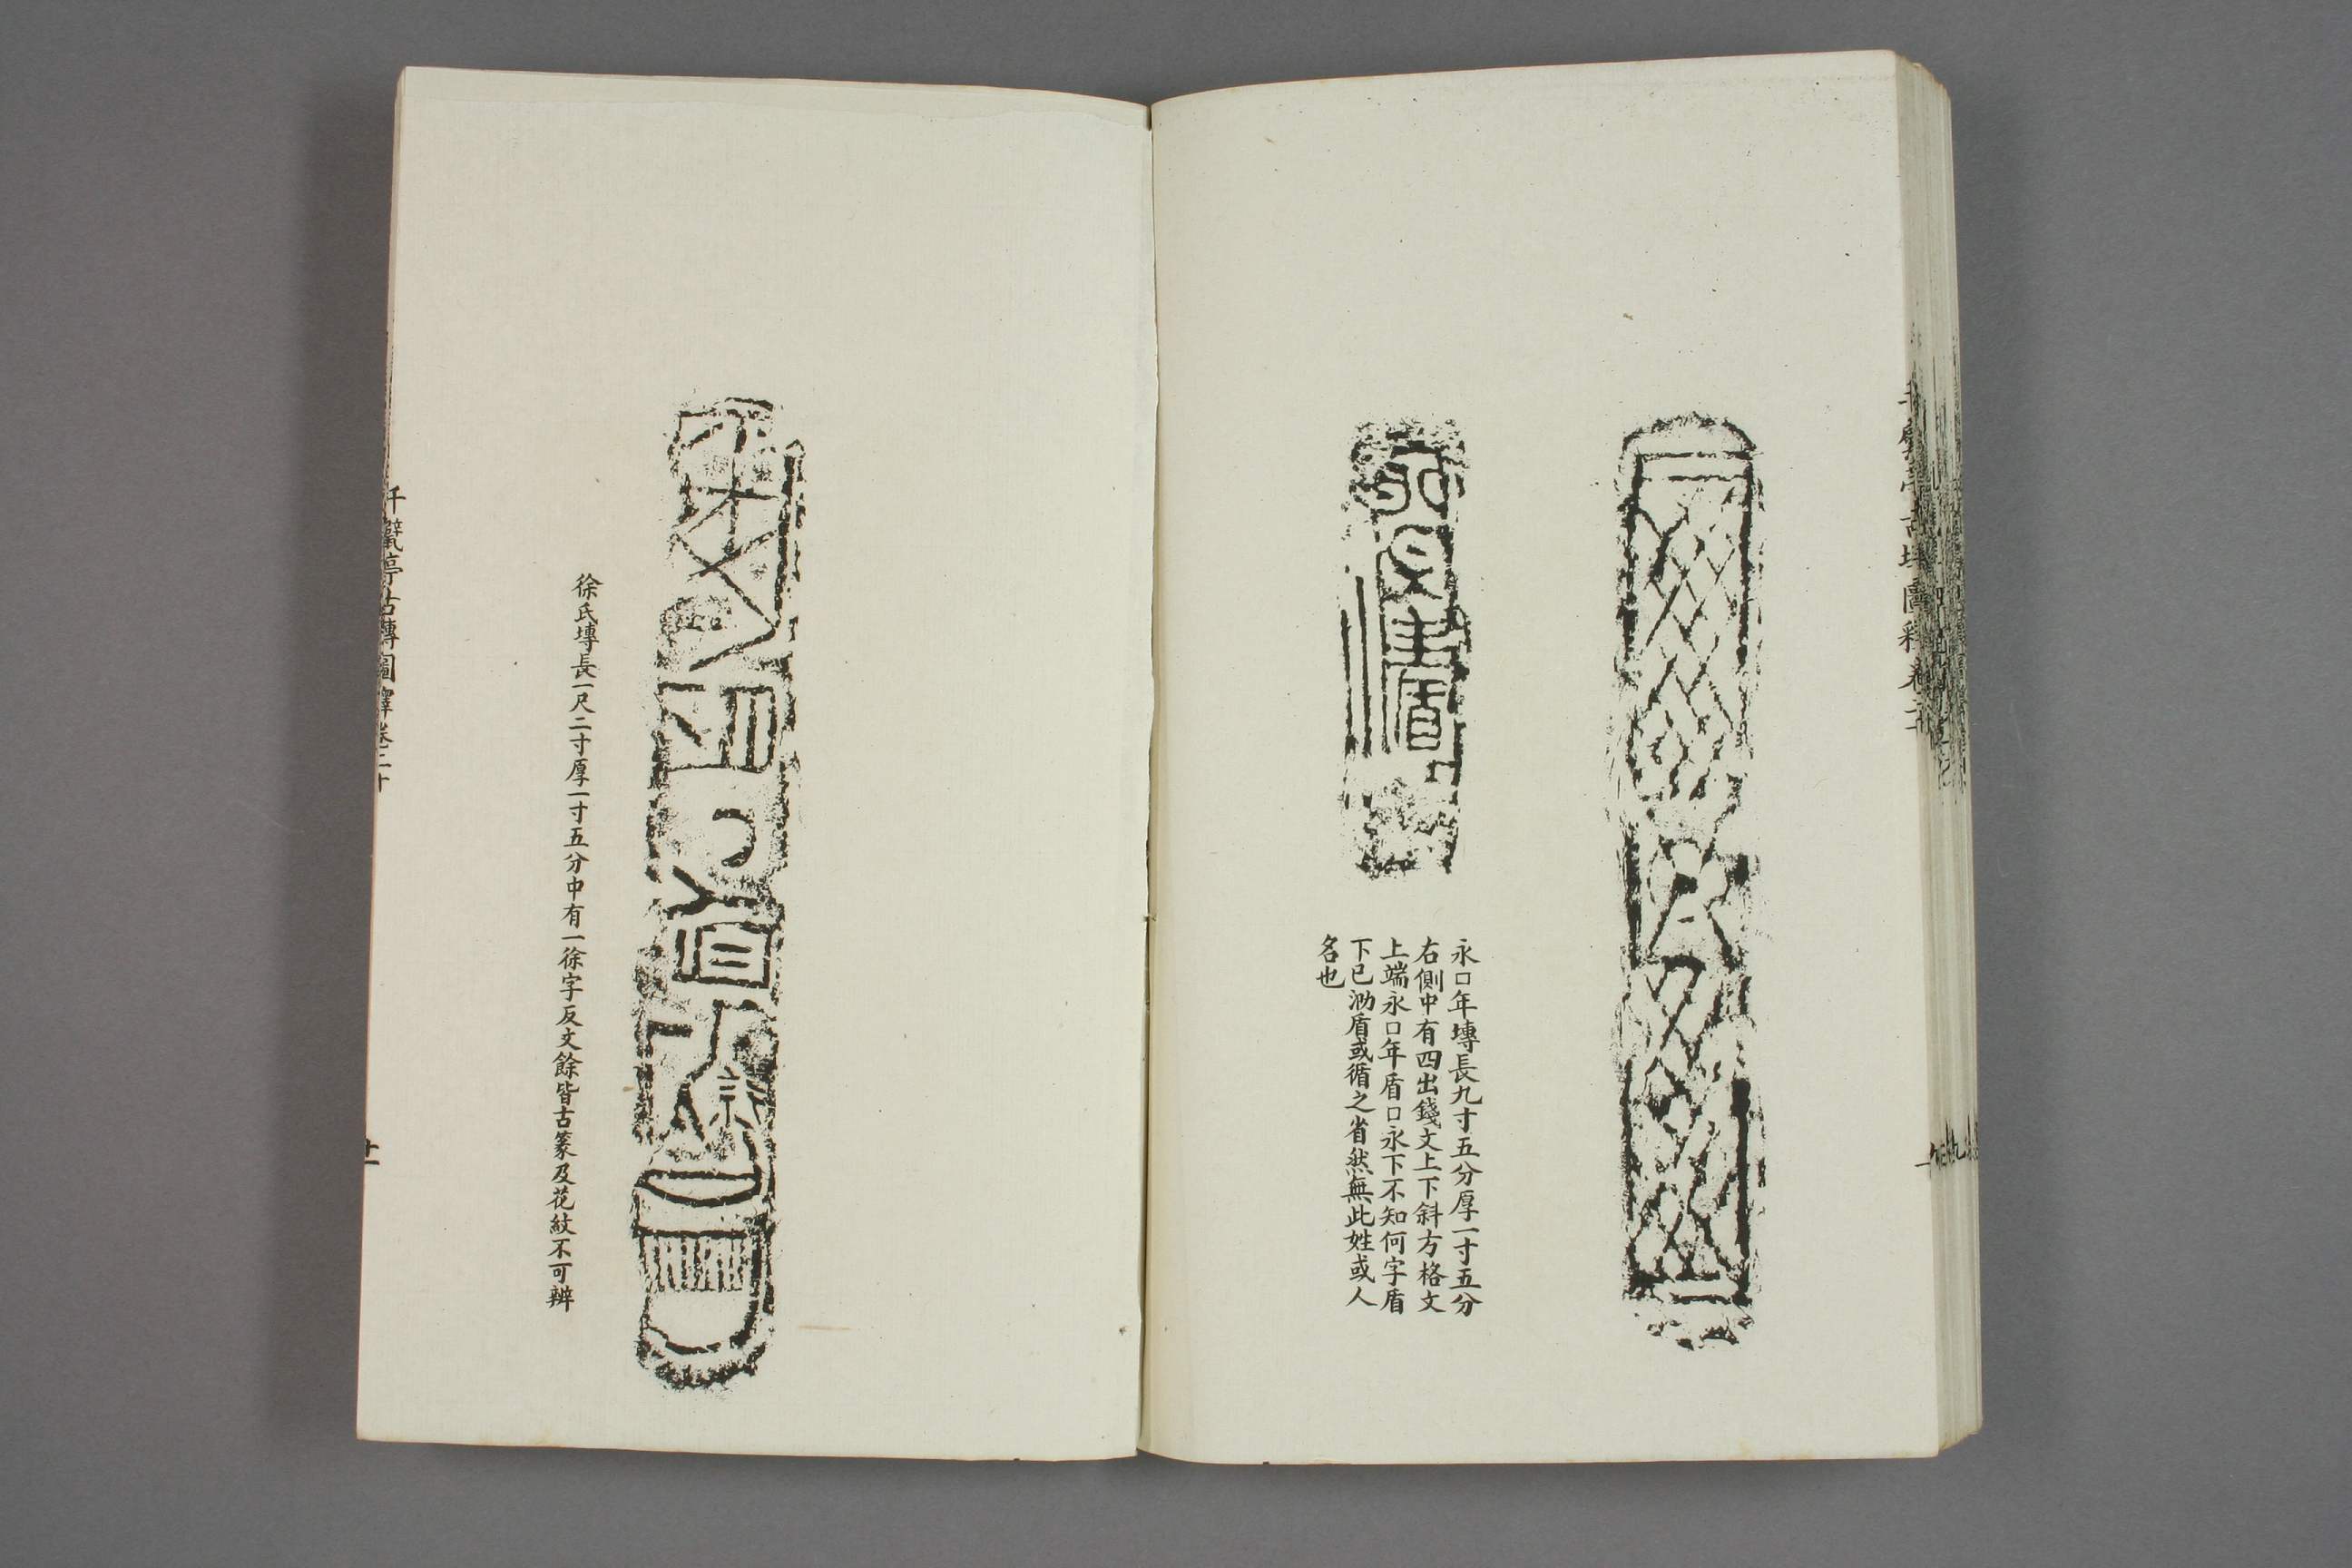 永口年塼長九寸五分厚一寸五分
右側中有四出錢文上下斜方格文
上端永口年盾口永下不知何字盾
下已泐盾或循之省然無此姓或人
名也
徐氏塼長一尺二寸厚一寸五分中有一徐字反文餘皆古篆及花紋不可辨
千甓亭古塼圖釋卷二十
廿一